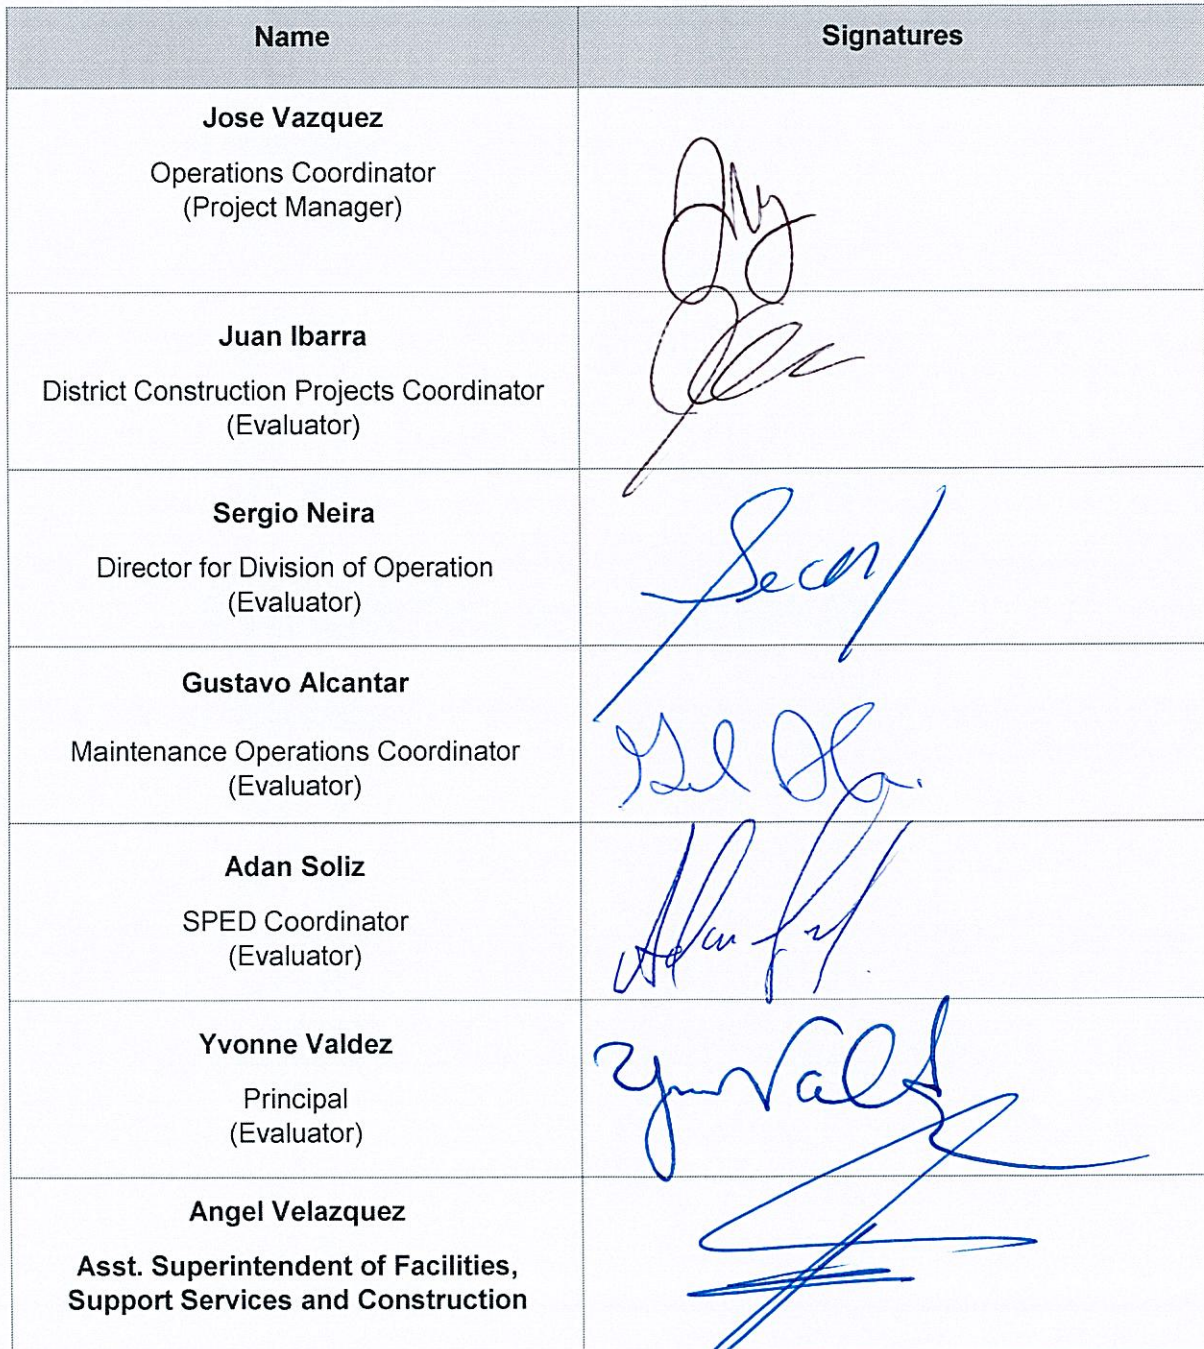 Name
Signatures
Jose Vazquez
Operations Coordinator
(Project Manager)
Juan Ibarra
District Construction Projects Coordinator
(Evaluator)
Sergio Neira
Director for Division of Operation
(Evaluator)
Gustavo Alcantar
Maintenance Operations Coordinator
(Evaluator)
Adan Soliz
SPED Coordinator
(Evaluator)
Yvonne Valdez
Principal
(Evaluator)
Angel Velazquez
Asst. Superintendent of Facilities,
Support Services and Construction